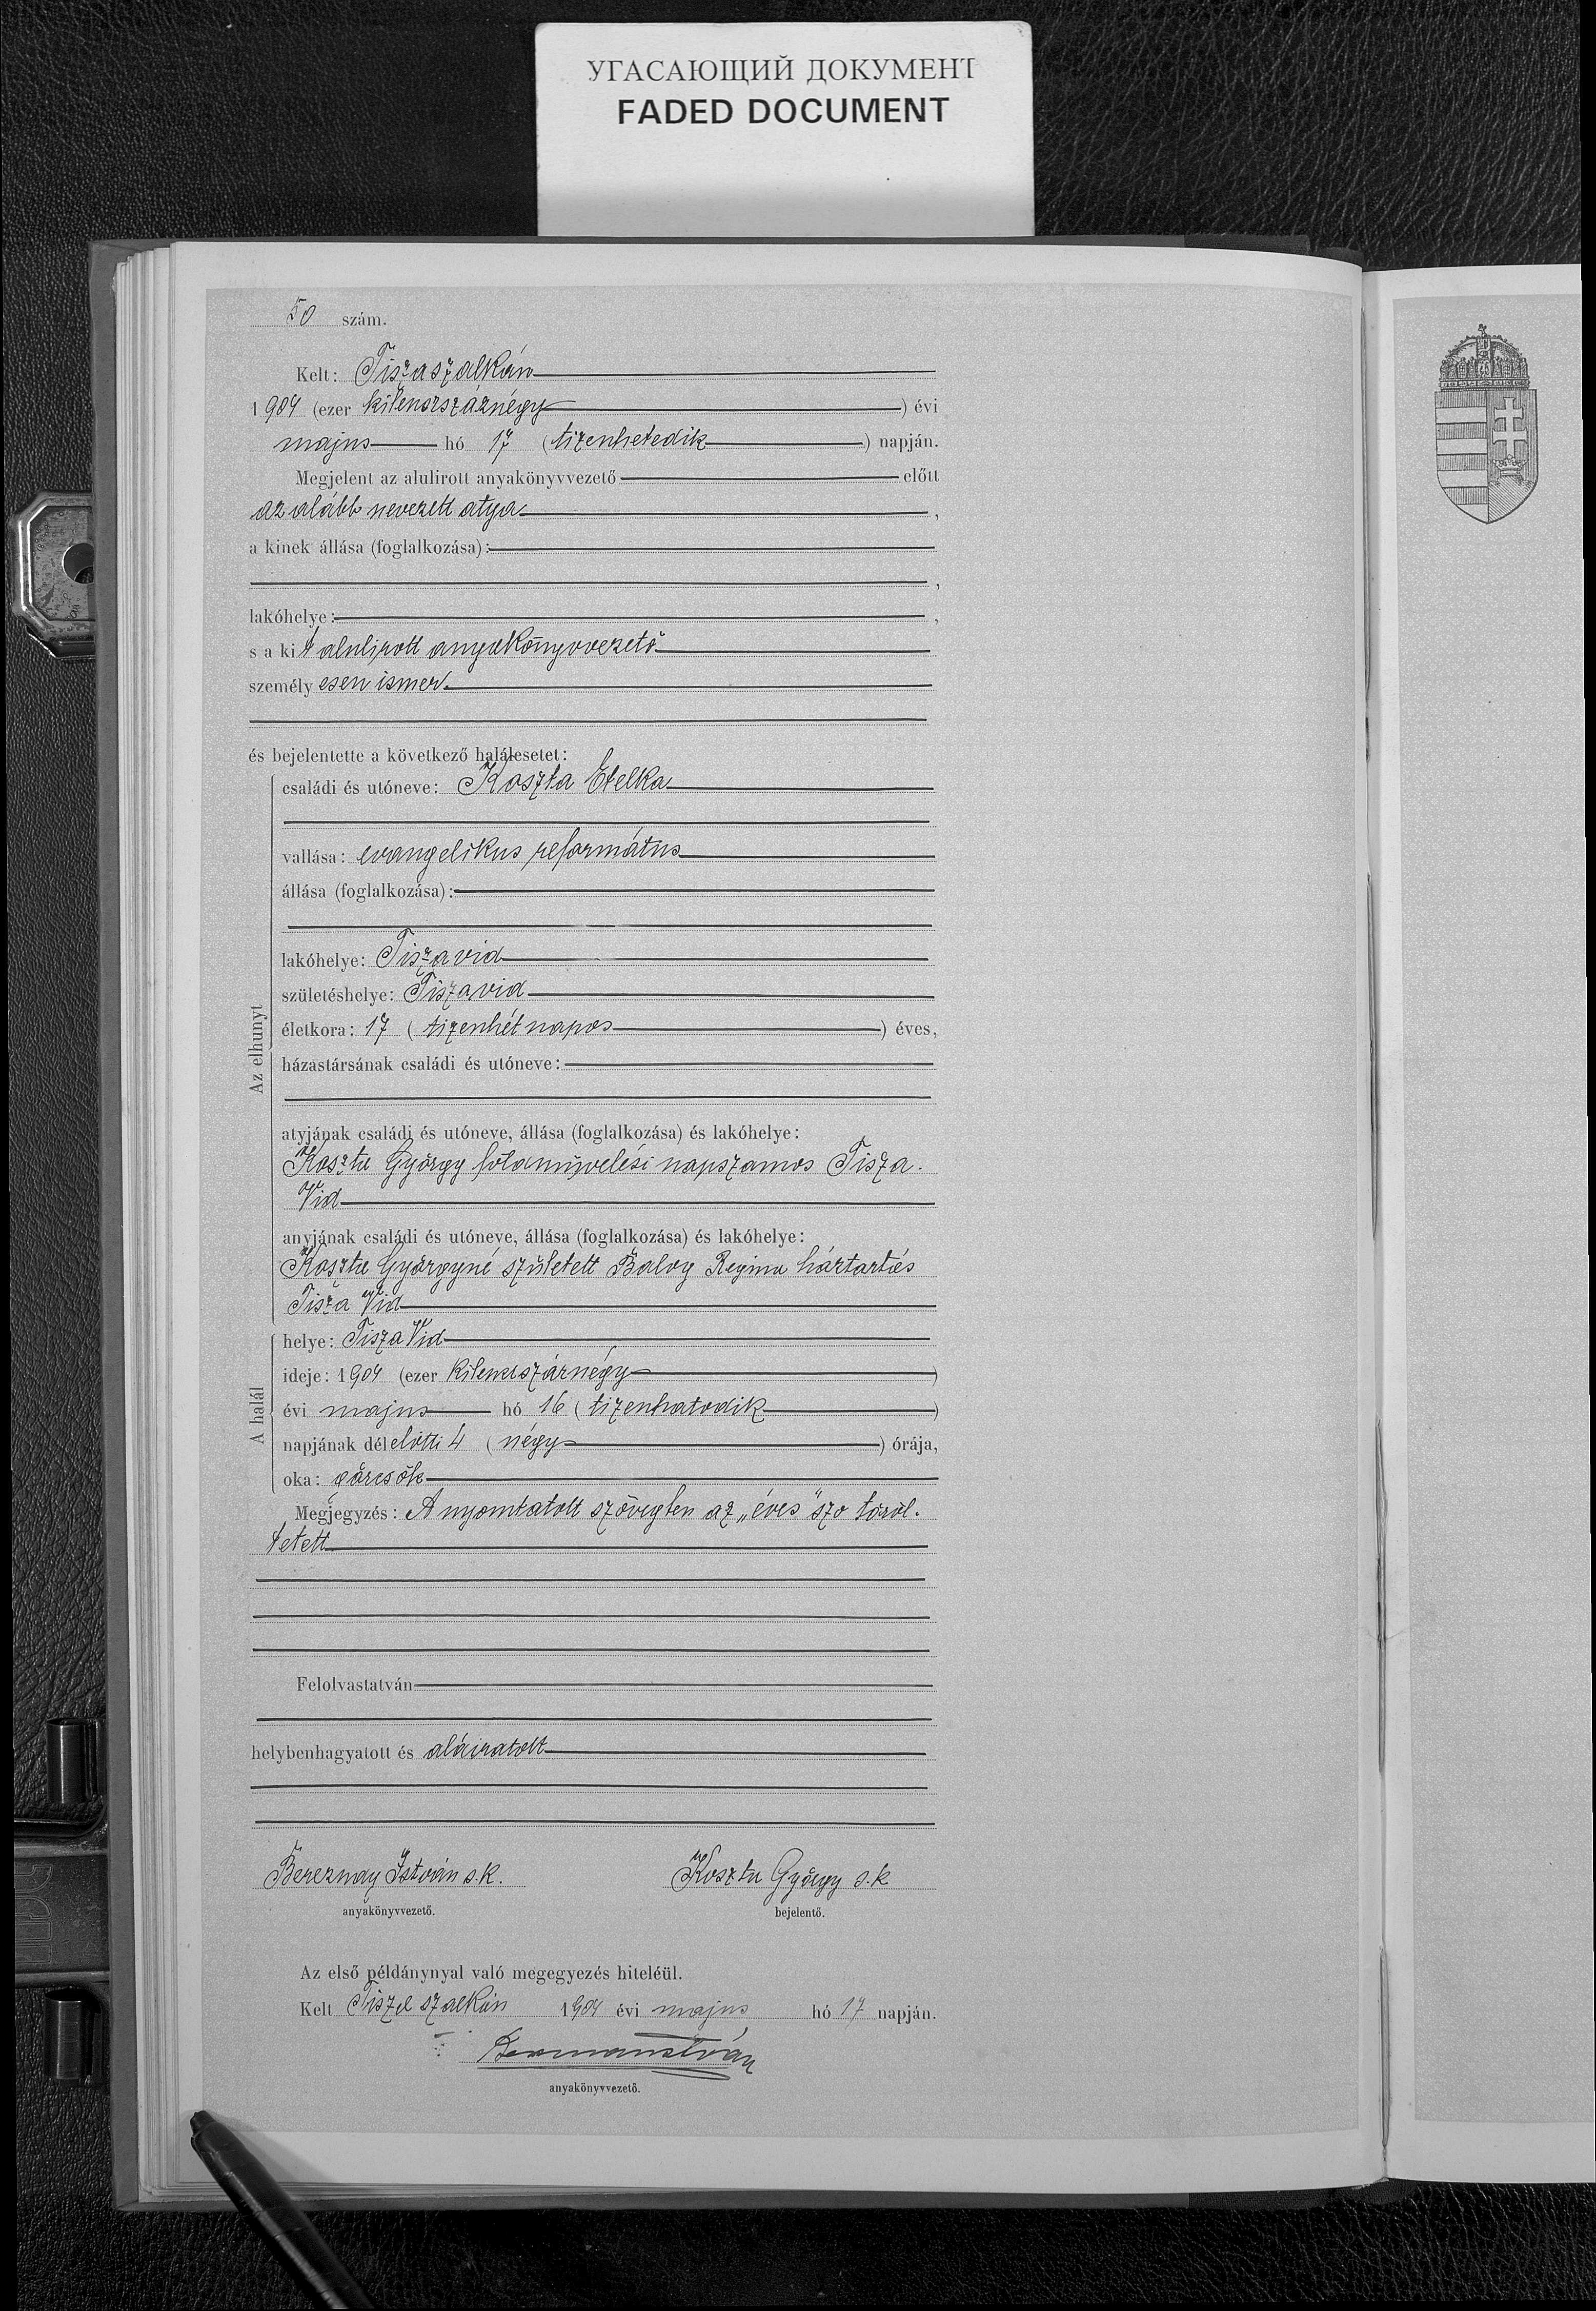 УГАСАЮЩИЙ ДОКУМЕНТ
FADED DOCUMENT
50 szám.
Kelt: Tiszaszalkán
1904 (ezer kilencszáznégy) évi
majus hó 17 (tizenhetedik) napján.
Megjelent az alulirott anyakönyvvezető előtt
az alább nevezett atya,
a kinek állása (foglalkozása):
,
lakóhelye: ,
s a kit alulirott anyakönyvvezető
személyesen ismer.
és bejelentette a következő halálesetet:
Az elhunyt
családi és utóneve: Koszta Etelka
vallása: evangelikus református
állása (foglalkozása):
lakóhelye: Tiszavid
születéshelye: Tiszavid
életkora: 17 (tizenhét napos) éves,
házastársának családi és utóneve:
atyjának családi és utóneve, állása (foglalkozása) és lakóhelye:
Koszta György földmüvelési napszamos Tisza.
Vid
anyjának családi és utóneve, állása (foglalkozása) és lakóhelye:
Koszta Györgyné született Balog Regina háztartás
Tisza Vid
A halál
helye: Tisza Vid
ideje: 1904 (ezer kilencszáznégy)
évi majus hó 16 (tizenhatodik)
napjának délelötti 4 (négy) órája,
oka: görcsök
Megjegyzés: A nyomtatott szövegben az „éves" szo töröl.
tetett
Felolvastatván
helybenhagyatott és aláiratott
Bereznay István s.k. Koszta György s.k
anyakönyvvezető. bejelentő.
Az első példánynyal való megegyezés hiteléül.
Kelt Tisza szalkán 1904 évi majus hó 17 napján.
anyakönyvvezető.